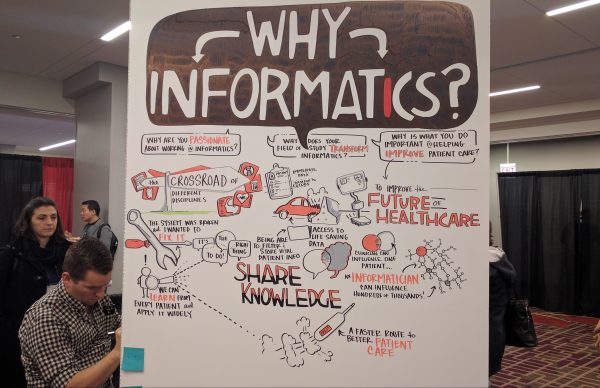 WHY
INFORMATICS?
WHY ARE YOU PASSIONATE
ABOUT WORKING @ INFORMATICS?
WHY DOES YOUR
FIELD OF STUDY TRANSFORM
INFORMATICS?
WHY IS WHAT YOU DO
IMPORTANT @ HELPING
IMPROVE PATIENT CARE?
the CROSSROAD OF
DIFFERENT
DISCIPLINES
TO IMPROVE the
FUTURE OF
HEALTHCARE
THE SYSTEM WAS BROKEN
AND I WANTED TO
FIX IT
IT'S the RIGHT THING
TO DO!
BEING ABLE
TO FILTER &
STORE VITAL
PATIENT INFO
ACCESS TO
LIFE SAVING
DATA
CLINICIAN CAN
INFLUENCE ONE
PATIENT...
AN INFORMATICIAN
CAN INFLUENCE
HUNDREDS OF THOUSANDS!
WE CAN
LEARN FROM
EVERY PATIENT AND
APPLY IT WIDELY
SHARE
KNOWLEDGE
A FASTER ROUTE TO
BETTER PATIENT
CARE
EXIT